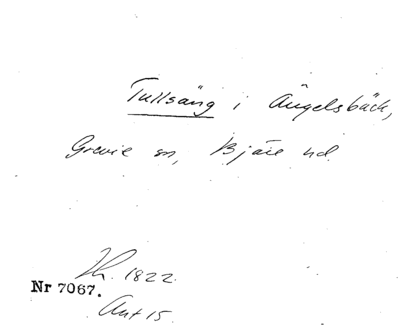 Tullsäng i Ängelsbäck,
Grevie sn, Bjäre hd.
Th. 1822.
Nr 7067.
Ant 15.